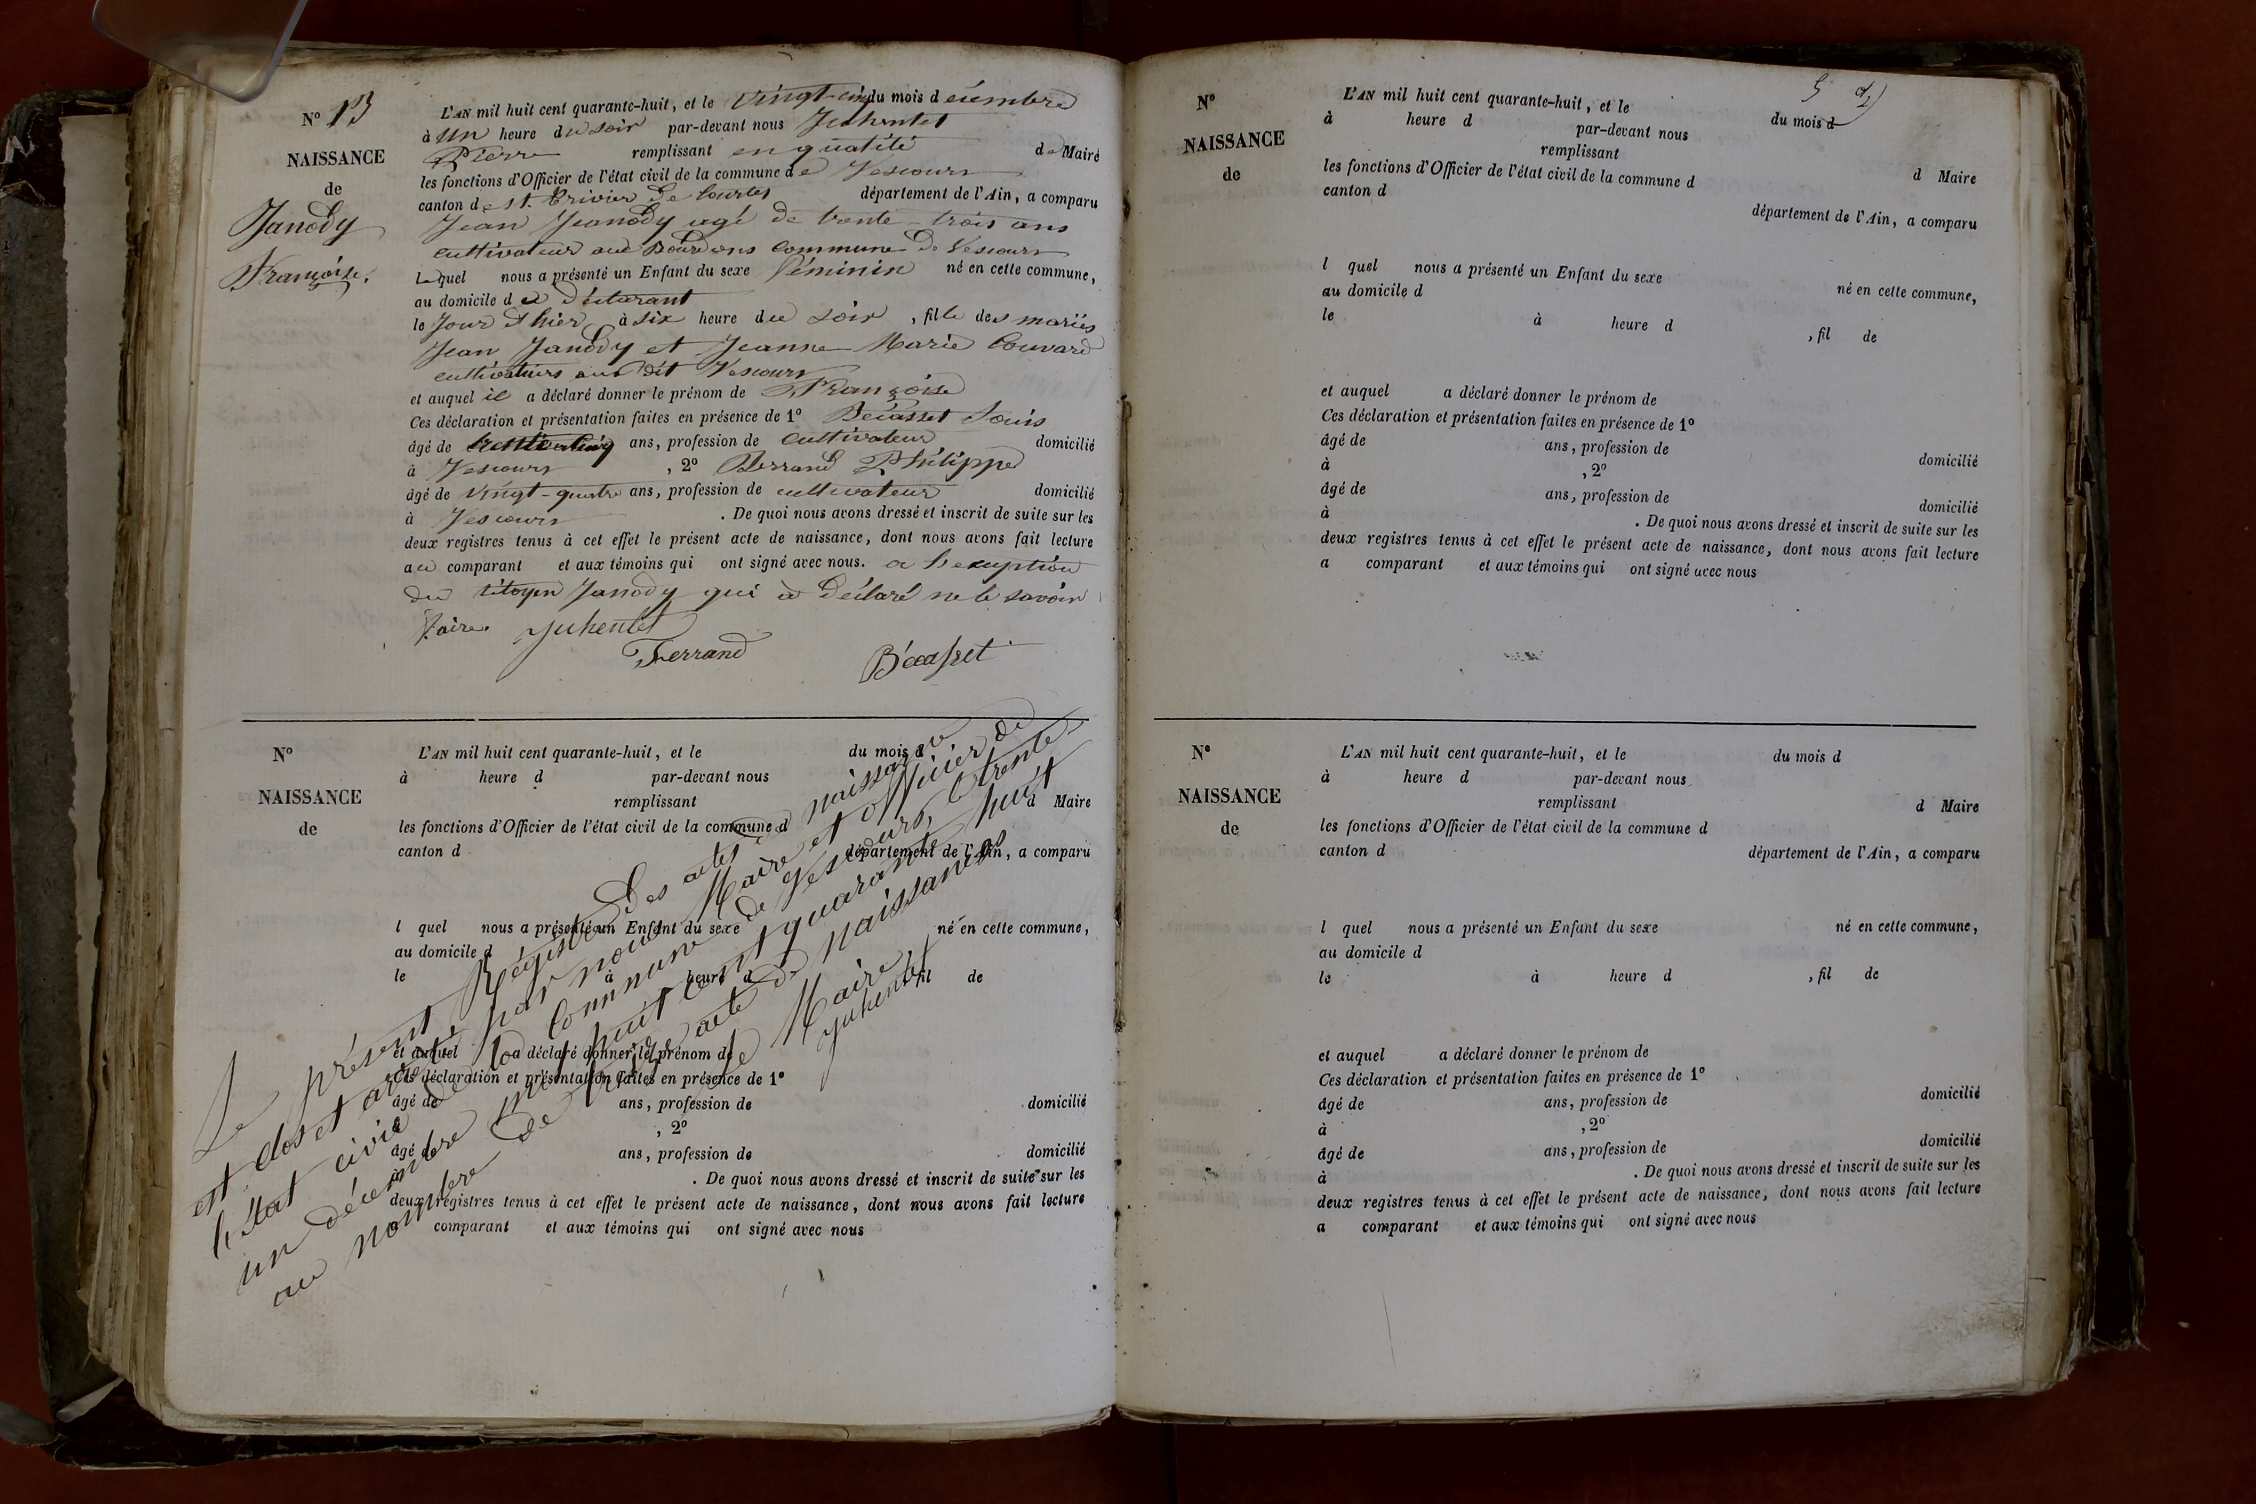 N° 13
NAISSANCE
de
Janody
Françoise.
L'AN mil huit cent quarante-huit, et le vingt-cinq du mois d écembre
à un heure du soir par-devant nous Juhentet
Pierre remplissant en qualité de Maire
les fonctions d'Officier de l'état civil de la commune de Vescours
canton de St. Trivier de Courtes département de l'Ain, a comparu
Jean Jeanody agé de trente-trois ans
cultivateur aux Bourdons commune de Vescours
Lequel nous a présenté un Enfant du sexe féminin né en cette commune,
au domicile du déclarant
le Jour d'hier à six heure du soir, fille des mariés
Jean Janody et Jeanne Marie Couvard
cultivateurs au dit Vescours
et auquel il a déclaré donner le prénom de Françoise
Ces déclaration et présentation faites en présence de 1° Bécasset Louis
âgé de ans, profession de cultivateur domicilié
à Vescours, 2° Ferrand Philippe
âgé de vingt-quatre ans, profession de cultivateur domicilié
à Vescours. De quoi nous avons dressé et inscrit de suite sur les
deux registres tenus à cet effet le présent acte de naissance, dont nous avons fait lecture
au comparant et aux témoins qui ont signé avec nous. a l'exception
du citoyen Janody qui a déclaré ne le savoir
faire. Juhentet
Ferrand Bécasset
N°
NAISSANCE
de
L'AN mil huit cent quarante-huit, et le du mois d
à heure d par-devant nous
remplissant d Maire
les fonctions d'Officier de l'état civil de la commune d
canton d département de l'Ain, a comparu
l quel nous a présenté un Enfant du sexe né en cette commune,
au domicile d
le à heure d , fil de
et auquel a déclaré donner le prénom de
Ces déclaration et présentation faites en présence de 1°
âgé de ans, profession de domicilié
à , 2°
âgé de ans, profession de domicilié
à . De quoi nous avons dressé et inscrit de suite sur les
deux registres tenus à cet effet le présent acte de naissance, dont nous avons fait lecture
a comparant et aux témoins qui ont signé avec nous
Le présent Régistre des actes de naissance
est clos et arreté par nous Maire et officier de
l'état civil de la commune de Vescours, le trente-
un décembre mil huit cent quarante huit
au nombre de treize acte de naissances
Le Maire
Juhentet
N°
NAISSANCE
de
L'AN mil huit cent quarante-huit, et le du mois d
à heure d par-devant nous
remplissant d Maire
les fonctions d'Officier de l'état civil de la commune d
canton d département de l'Ain, a comparu
l quel nous a présenté un Enfant du sexe né en cette commune,
au domicile d
le à heure d , fil de
et auquel a déclaré donner le prénom de
Ces déclaration et présentation faites en présence de 1°
âgé de ans, profession de domicilié
à , 2°
âgé de ans, profession de domicilié
à . De quoi nous avons dressé et inscrit de suite sur les
deux registres tenus à cet effet le présent acte de naissance, dont nous avons fait lecture
a comparant et aux témoins qui ont signé avec nous
N°
NAISSANCE
de
L'AN mil huit cent quarante-huit, et le du mois d
à heure d par-devant nous
remplissant d Maire
les fonctions d'Officier de l'état civil de la commune d
canton d département de l'Ain, a comparu
l quel nous a présenté un Enfant du sexe né en cette commune,
au domicile d
le à heure d , fil de
et auquel a déclaré donner le prénom de
Ces déclaration et présentation faites en présence de 1°
âgé de ans, profession de domicilié
à , 2°
âgé de ans, profession de domicilié
à . De quoi nous avons dressé et inscrit de suite sur les
deux registres tenus à cet effet le présent acte de naissance, dont nous avons fait lecture
a comparant et aux témoins qui ont signé avec nous